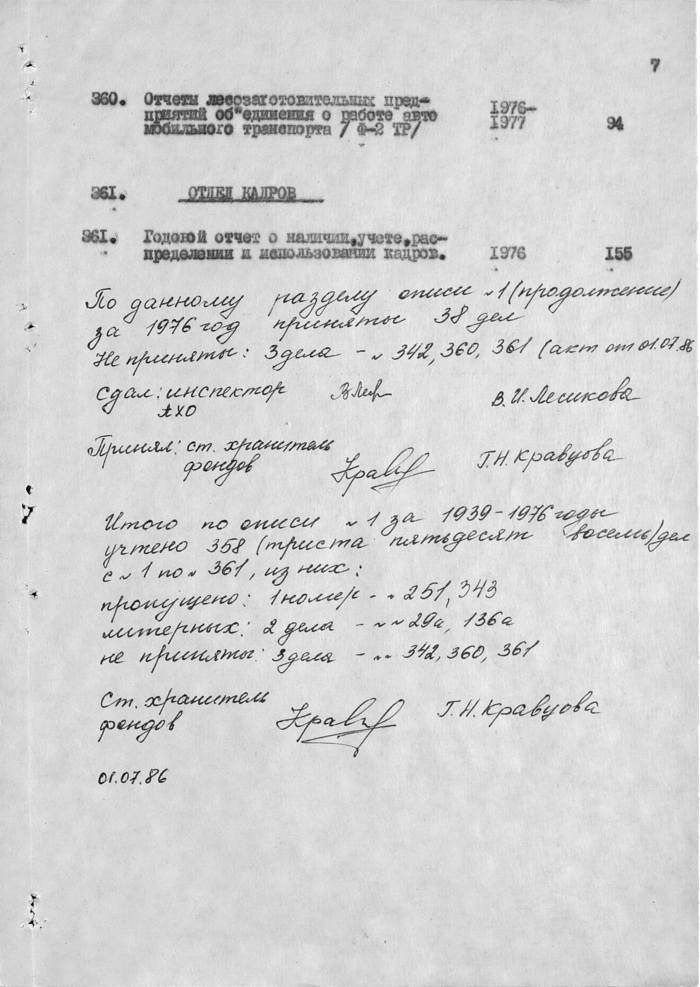 7
360. Отчеты лесозаготовительных пред-
приятий об"единения о работе авто
мобильного транспорта / Ф-2 ТР/ 1976-1977 94
361. ОТДЕЛ КАДРОВ
361. Годовой отчет о наличии,учете,рас-
пределении и использовании кадров. 1976 155
По данному разделу описи №1 (продолжение)
за 1976 год приняты 38 дел
Не приняты: 3 дела - № 342, 360, 361 (акт от 01.07.86
Сдал: инспектор В.И. Лесикова
АХО
Принял: ст. хранитель Г.Н. Кравцова
фондов
Итого по описи №1 за 1939-1976 годы
учтено 358 (триста пятьдесят восемь) дел
с №1 по № 361, из них:
пропущено: 1 номер - № 251, 343
литерных: 2 дела - №№ 29а, 136а
не приняты: 3 дела - №№ 342, 360, 361
Ст. хранитель Г.Н. Кравцова
фондов
01.07.86